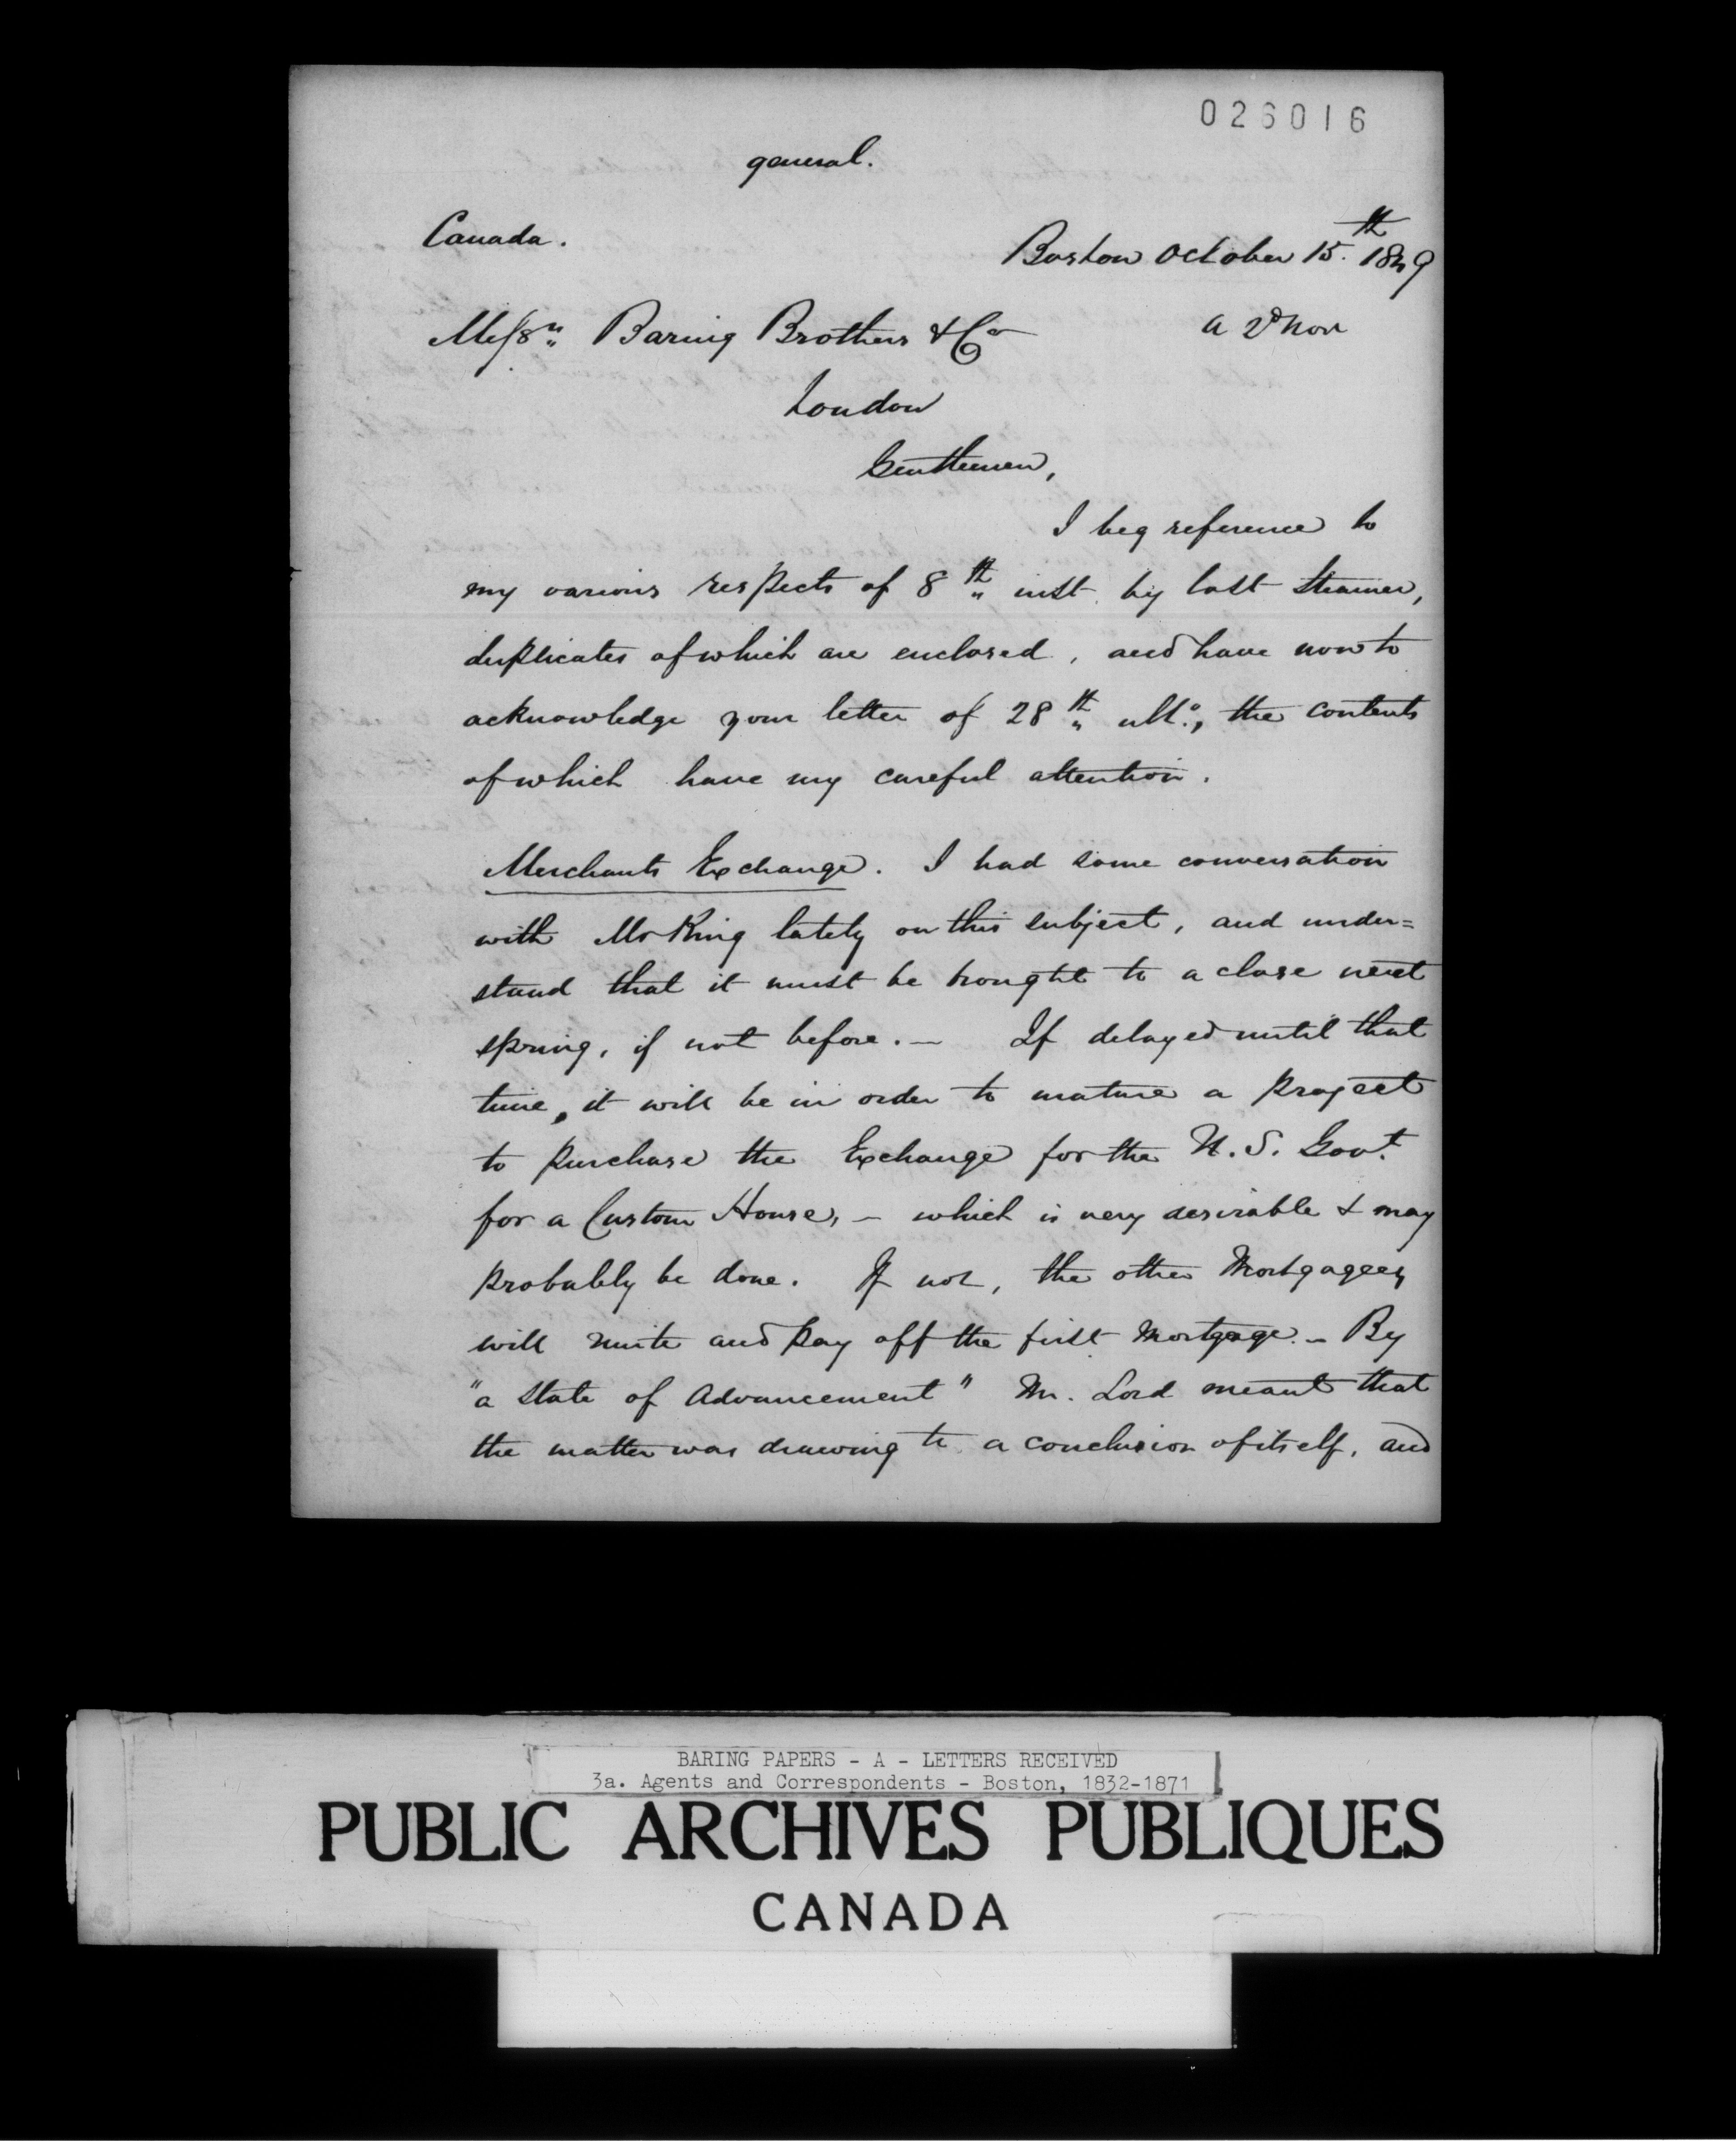 026016
general.
Canada.
Boston October 15th. 1849
Messrs Baring Brothers & Co
a 2d Nov
London
Gentlemen,
I beg reference to
my various respects of 8th inst. by last steamer,
duplicates of which are enclosed, and have now to
acknowledge your letter of 28th ulto., the contents
of which have my careful attention.
Merchants Exchange. I had some conversation
with Mr King lately on this subject, and under=
stand that it must be brought to a close next
spring, if not before. — If delayed until that
time, it will be in order to mature a project
to purchase the Exchange for the U. S. Govt.
for a Custom House, — which is very desirable & may
probably be done. If not, the other Mortgagees
will unite and pay off the first Mortgage. — By
"a state of Advancement" Mr. Lord meant that
the matter was drawing to a conclusion of itself, and
BARING PAPERS - A - LETTERS RECEIVED
3a. Agents and Correspondents - Boston, 1832-1871
PUBLIC ARCHIVES PUBLIQUES
CANADA